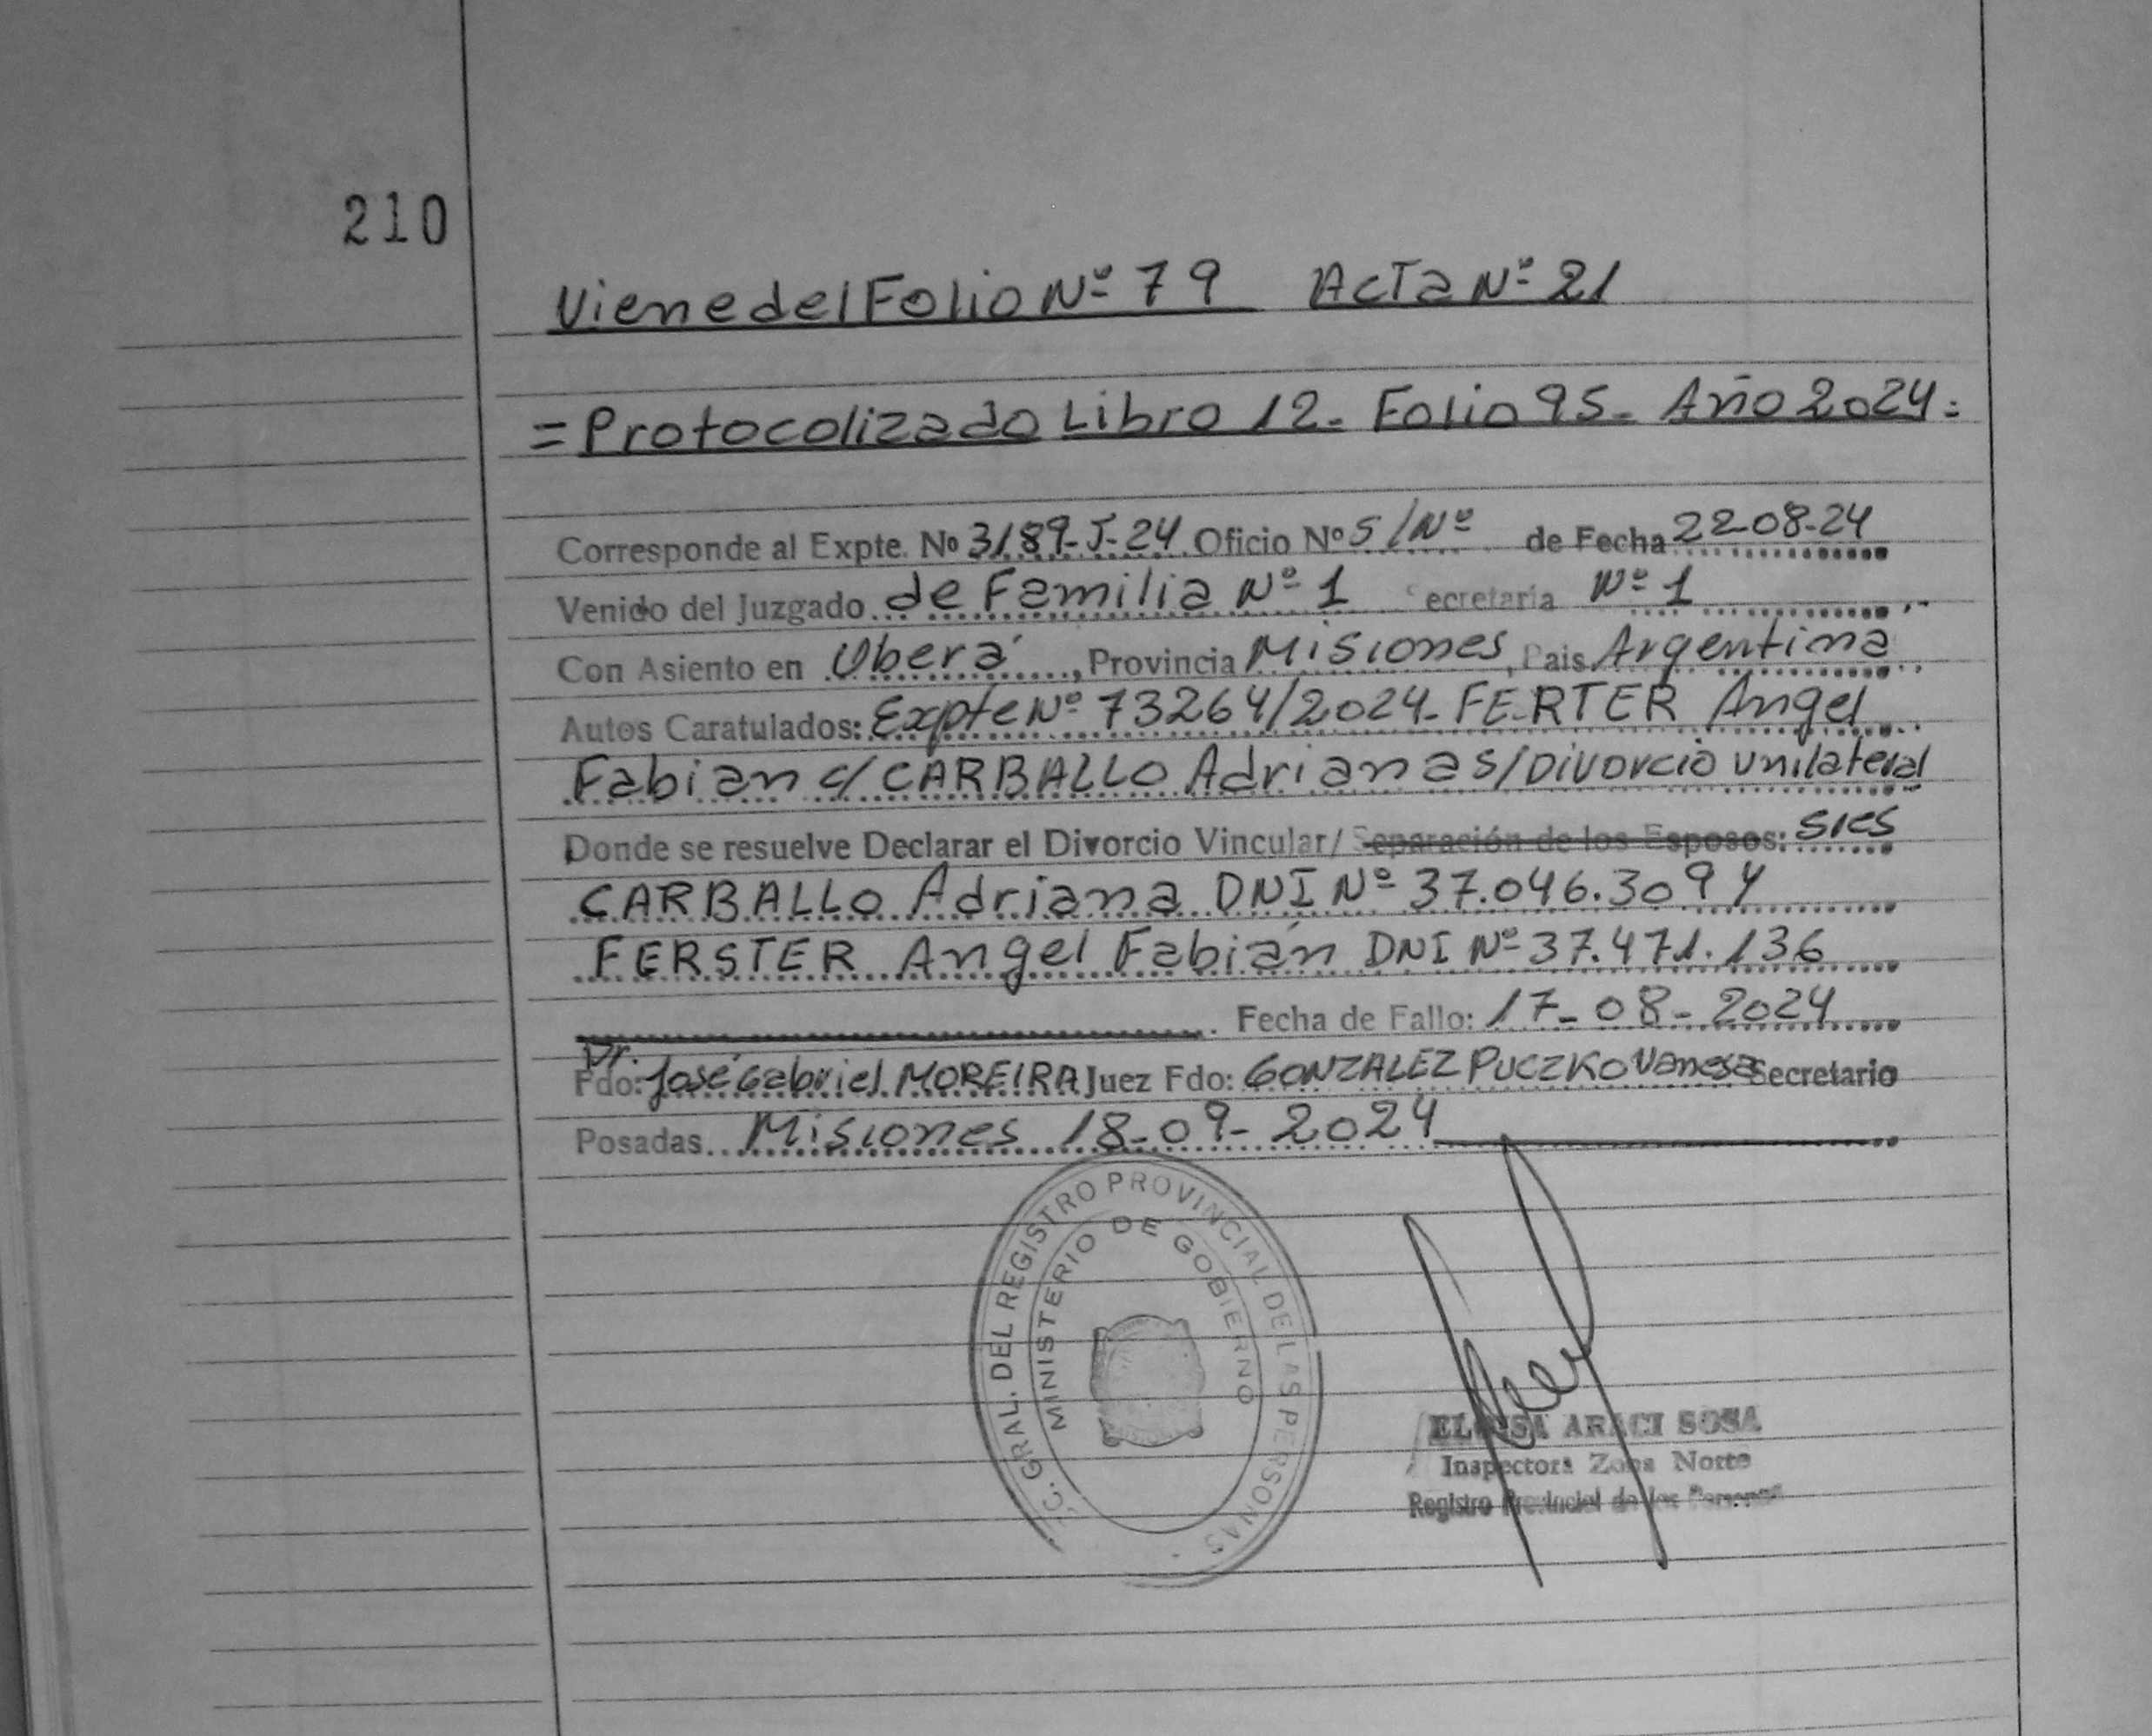 210
Viene del Folio Nº 79 Acta Nº 21
= Protocolizado Libro 12- Folio 95- Año 2024=
Corresponde al Expte. Nº 3189-J-24 Oficio Nº S/Nº de Fecha 22-08-24
Venido del Juzgado de Familia Nº 1 Secretaria Nº 1
Con Asiento en Oberá, Provincia Misiones, Pais Argentina
Autos Caratulados: Expte Nº 73264/2024- FERTER Angel
Fabian c/ CARBALLO Adriana s/ Divorcio Unilateral
Donde se resuelve Declarar el Divorcio Vincular/ Separación de los Esposos: sres
CARBALLO Adriana DNI Nº 37.046.309 y
FERSTER Angel Fabián DNI Nº 37.471.136
Fecha de Fallo: 17-08-2024
Fdo: Dr. José Gabriel MOREIRA Juez Fdo: GONZALEZ PUCZKO Vanesa Secretario
Posadas. Misiones 18-09-2024
C. GRAL. DEL REGISTRO PROVINCIAL DE LAS PERSONAS
MINISTERIO DE GOBIERNO
ELOISA ARACI SOSA
Inspectora Zona Norte
Registro Provincial de las Personas